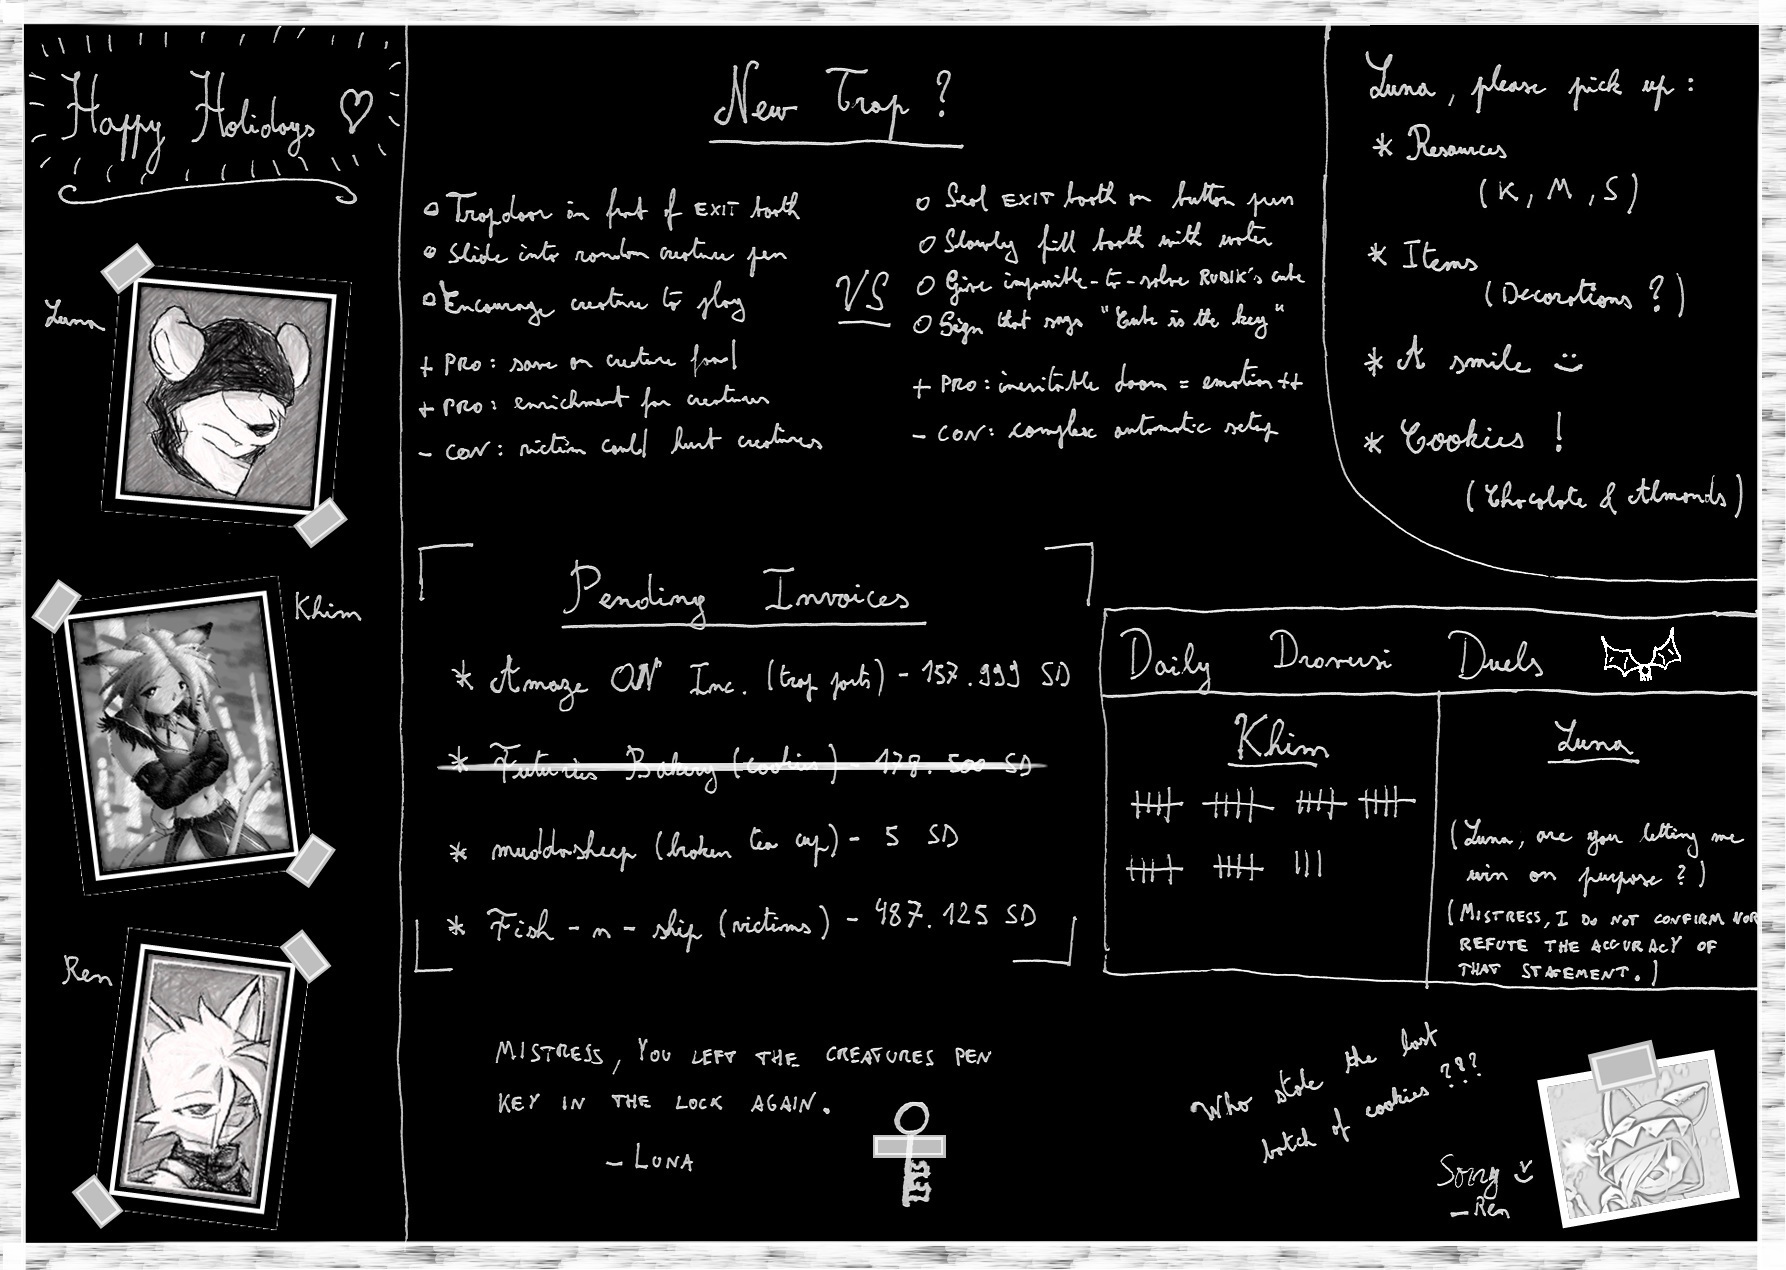 Happy Holidays ♡
Luna
Khim
Ren
New Trap ?
o Trapdoor in front of EXIT booth
o Slide into random creature pen
o Encourage creature to play
+ PRO: save on creature food
+ PRO: enrichment for creatures
- CON: victim could hurt creatures
VS
o Seal EXIT booth on button pen
o Slowly fill booth with water
o Give impossible-to-solve RUBIK's cube
o Sign that says "Cube is the key"
+ PRO: inevitable doom = emotion ++
- CON: complex automatic setup
Luna, please pick up:
* Resources
(K, M, S)
* Items
(Decorations ?)
* A smile :)
* Cookies !
(Chocolate & Almonds)
Pending Invoices
* Amaze ON Inc. (trap parts) - 157.999 SD
* Futuries Bakery (cookies) - 178.500 SD
* muddasheep (broken tea cup) - 5 SD
* Fish-n-ship (victims) - 487.125 SD
Daily Dronusi Duels
Khim
Luna
(Luna, are you letting me
win on purpose ?)
(MISTRESS, I DO NOT CONFIRM NOR
REFUTE THE ACCURACY OF
THAT STATEMENT.)
MISTRESS, YOU LEFT THE CREATURES PEN
KEY IN THE LOCK AGAIN.
- LUNA
Who stole the last
batch of cookies ???
Sorry
- Ren